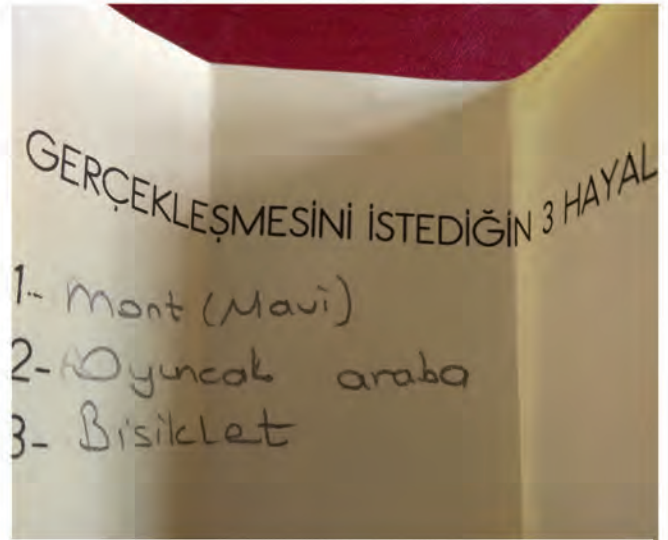 GERÇEKLEŞMESİNİ İSTEDİĞİN 3 HAYAL
1- Mont (Mavi)
2- Oyuncak araba
3- Bisiklet